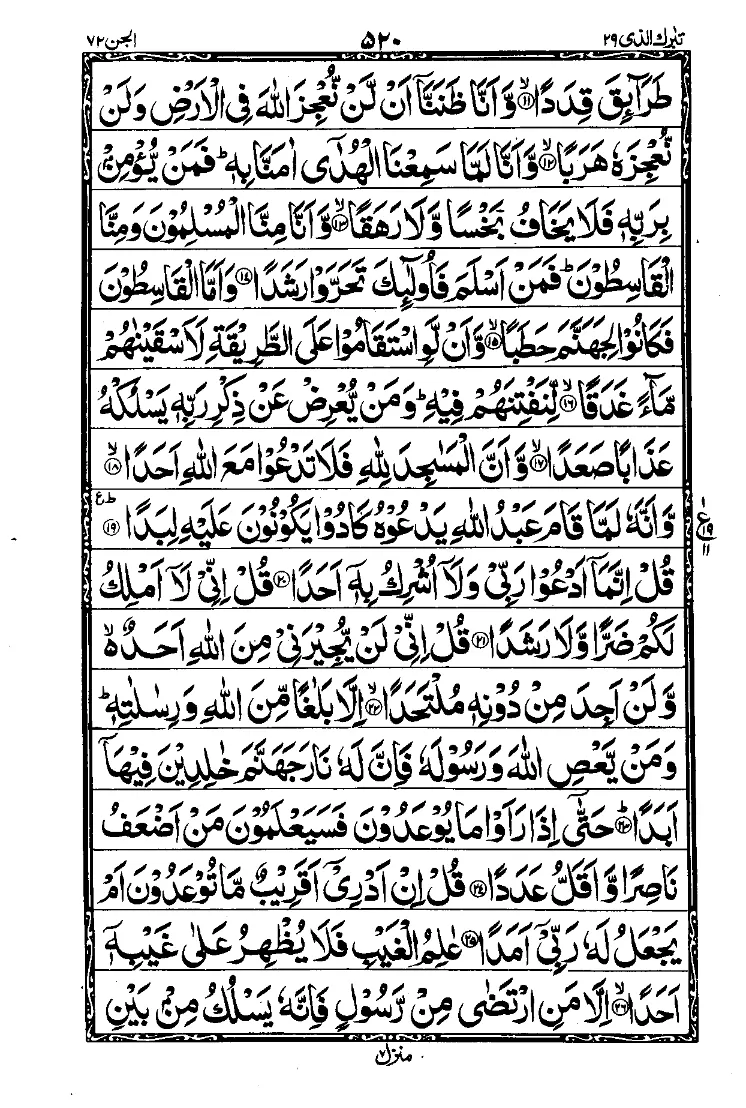 تبٰرك الذی ٢٩ ٥٢٠ الجن ٧٢
طَرَآئِقَ قِدَدًا ۙ﴿١١﴾ وَّاَنَّا ظَنَنَّاۤ اَنْ لَّنْ نُّعْجِزَ اللّٰهَ فِی الْاَرْضِ وَلَنْ
نُّعْجِزَهٗ هَرَبًا ۙ﴿١٢﴾ وَّاَنَّا لَمَّا سَمِعْنَا الْهُدٰۤی اٰمَنَّا بِهٖ ؕ فَمَنْ یُّؤْمِنْۢ
بِرَبِّهٖ فَلَا یَخَافُ بَخْسًا وَّلَا رَهَقًا ۙ﴿١٣﴾ وَّاَنَّا مِنَّا الْمُسْلِمُوْنَ وَمِنَّا
الْقَاسِطُوْنَ ؕ فَمَنْ اَسْلَمَ فَاُولٰٓئِكَ تَحَرَّوْا رَشَدًا ﴿١٤﴾ وَاَمَّا الْقَاسِطُوْنَ
فَكَانُوْا لِجَهَنَّمَ حَطَبًا ۙ﴿١٥﴾ وَّاَنْ لَّوِ اسْتَقَامُوْا عَلَی الطَّرِیْقَةِ لَاَسْقَیْنٰهُمْ
مَّآءً غَدَقًا ۙ﴿١٦﴾ لِّنَفْتِنَهُمْ فِیْهِ ؕ وَمَنْ یُّعْرِضْ عَنْ ذِكْرِ رَبِّهٖ یَسْلُكْهُ
عَذَابًا صَعَدًا ۙ﴿١٧﴾ وَّاَنَّ الْمَسٰجِدَ لِلّٰهِ فَلَا تَدْعُوْا مَعَ اللّٰهِ اَحَدًا ۙ﴿١٨﴾
وَّاَنَّهٗ لَمَّا قَامَ عَبْدُ اللّٰهِ یَدْعُوْهُ كَادُوْا یَكُوْنُوْنَ عَلَیْهِ لِبَدًا ؕ﴿١٩﴾ ع
١ ع ١٩ ١١
قُلْ اِنَّمَاۤ اَدْعُوْا رَبِّیْ وَلَاۤ اُشْرِكُ بِهٖۤ اَحَدًا ﴿٢٠﴾ قُلْ اِنِّیْ لَاۤ اَمْلِكُ
لَكُمْ ضَرًّا وَّلَا رَشَدًا ﴿٢١﴾ قُلْ اِنِّیْ لَنْ یُّجِیْرَنِیْ مِنَ اللّٰهِ اَحَدٌ ۙ۬
وَّلَنْ اَجِدَ مِنْ دُوْنِهٖ مُلْتَحَدًا ۙ﴿٢٢﴾ اِلَّا بَلٰغًا مِّنَ اللّٰهِ وَرِسٰلٰتِهٖ ؕ
وَمَنْ یَّعْصِ اللّٰهَ وَرَسُوْلَهٗ فَاِنَّ لَهٗ نَارَ جَهَنَّمَ خٰلِدِیْنَ فِیْهَاۤ
اَبَدًا ؕ﴿٢٣﴾ حَتّٰۤی اِذَا رَاَوْا مَا یُوْعَدُوْنَ فَسَیَعْلَمُوْنَ مَنْ اَضْعَفُ
نَاصِرًا وَّاَقَلُّ عَدَدًا ﴿٢٤﴾ قُلْ اِنْ اَدْرِیْۤ اَقَرِیْبٌ مَّا تُوْعَدُوْنَ اَمْ
یَجْعَلُ لَهٗ رَبِّیْۤ اَمَدًا ﴿٢٥﴾ عٰلِمُ الْغَیْبِ فَلَا یُظْهِرُ عَلٰی غَیْبِهٖۤ
اَحَدًا ۙ﴿٢٦﴾ اِلَّا مَنِ ارْتَضٰی مِنْ رَّسُوْلٍ فَاِنَّهٗ یَسْلُكُ مِنْۢ بَیْنِ
منزل ٧